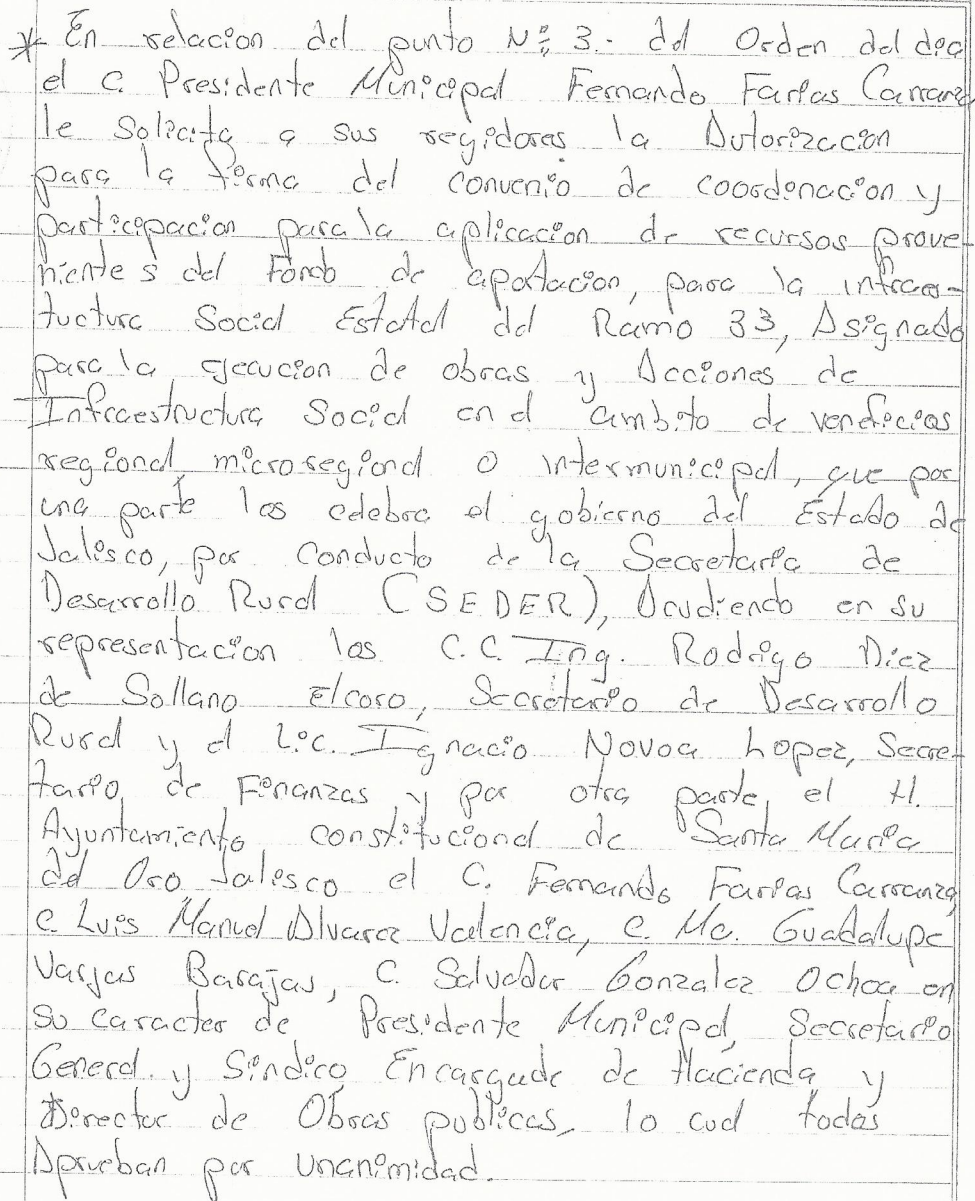 * En relacion del punto Nº 3.- del Orden del dia
el C. Presidente Municipal Fernando Farias Carranza
le Solicita a sus regidores la Autorizacion
para la firma del convenio de coordinacion y
participacion para la aplicacion de recursos prove-
nientes del Fondo de aportacion, para la infraes-
tuctura Social Estatal del Ramo 33, Asignado
para la ejecucion de obras y Acciones de
Infraestructura Social en el ambito de veneficios
regional, microregional o intermunicipal, que por
una parte los celebra el gobierno del Estado de
Jalisco, por Conducto de la Secretaria de
Desarrollo Rural (SEDER), Acudiendo en su
representacion los C.C. Ing. Rodrigo Diez
de Sollano Elcoro, Secretario de Desarrollo
Rural y el Lic. Ignacio Novoa Lopez, Secre-
tario, de Finanzas, y por otra parte, el H.
Ayuntamiento constitucional de Santa Maria
del Oro Jalisco el C. Fernando Farias Carranza,
C. Luis Manuel Alvarez Valencia, C. Ma. Guadalupe
Vargas Barajas, C. Salvador Gonzalez Ochoa en
su caracter de Presidente Municipal, Secretario
General. y Sindico Encargade de Hacienda y
Director de Obras publicas, lo cual todos
Aprueban por Unanimidad.